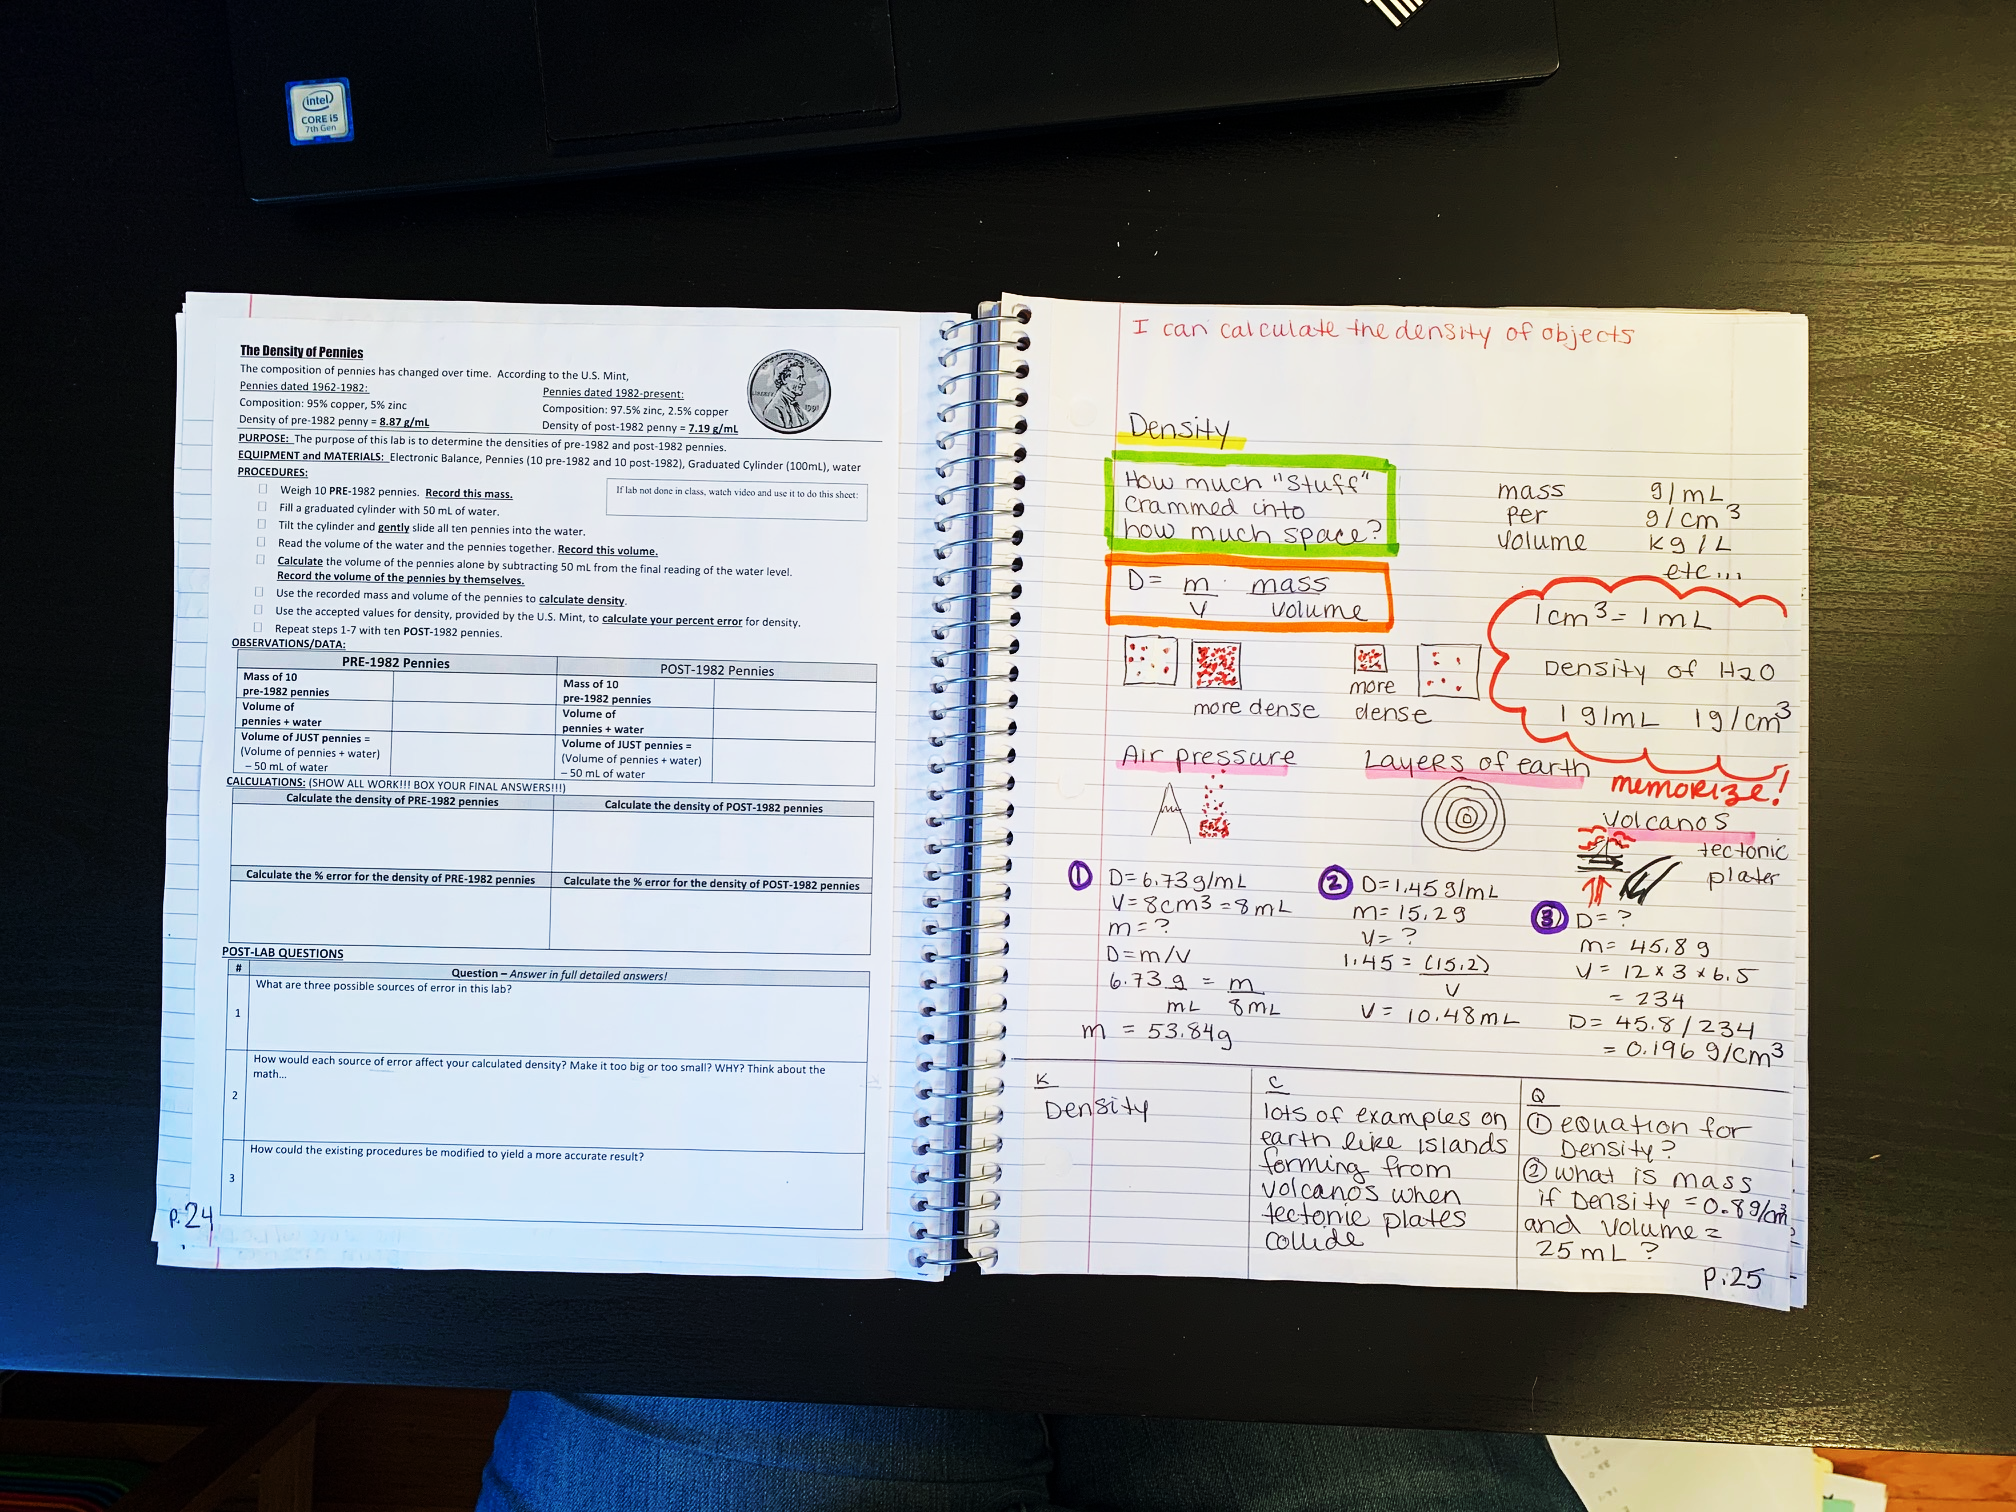 intel
CORE i5
7th Gen
The Density of Pennies
The composition of pennies has changed over time. According to the U.S. Mint,
Pennies dated 1962-1982:
Composition: 95% copper, 5% zinc
Density of pre-1982 penny = 8.87 g/mL
Pennies dated 1982-present:
Composition: 97.5% zinc, 2.5% copper
Density of post-1982 penny = 7.19 g/mL
LIBERTY
1991
PURPOSE: The purpose of this lab is to determine the densities of pre-1982 and post-1982 pennies.
EQUIPMENT and MATERIALS: Electronic Balance, Pennies (10 pre-1982 and 10 post-1982), Graduated Cylinder (100mL), water
PROCEDURES:
Weigh 10 PRE-1982 pennies. Record this mass.
Fill a graduated cylinder with 50 mL of water.
Tilt the cylinder and gently slide all ten pennies into the water.
Read the volume of the water and the pennies together. Record this volume.
Calculate the volume of the pennies alone by subtracting 50 mL from the final reading of the water level.
Record the volume of the pennies by themselves.
Use the recorded mass and volume of the pennies to calculate density.
Use the accepted values for density, provided by the U.S. Mint, to calculate your percent error for density.
Repeat steps 1-7 with ten POST-1982 pennies.
If lab not done in class, watch video and use it to do this sheet:
OBSERVATIONS/DATA:
PRE-1982 Pennies
POST-1982 Pennies
Mass of 10
pre-1982 pennies
Mass of 10
pre-1982 pennies
Volume of
pennies + water
Volume of
pennies + water
Volume of JUST pennies =
(Volume of pennies + water)
– 50 mL of water
Volume of JUST pennies =
(Volume of pennies + water)
– 50 mL of water
CALCULATIONS: (SHOW ALL WORK!!! BOX YOUR FINAL ANSWERS!!!)
Calculate the density of PRE-1982 pennies
Calculate the density of POST-1982 pennies
Calculate the % error for the density of PRE-1982 pennies
Calculate the % error for the density of POST-1982 pennies
POST-LAB QUESTIONS
#
Question – Answer in full detailed answers!
1
What are three possible sources of error in this lab?
2
How would each source of error affect your calculated density? Make it too big or too small? WHY? Think about the
math...
3
How could the existing procedures be modified to yield a more accurate result?
p.24
I can calculate the density of objects
Density
How much "Stuff"
crammed into
how much space?
mass
per
volume
g/mL
g/cm³
kg/L
etc...
D= m/v mass/volume
1cm³ = 1mL
Density of H2O
1g/mL 1g/cm³
memorize!
more dense
more
dense
Air pressure
Layers of earth
Volcanos
tectonic
plater
① D=6.73g/mL
V=8cm3=8mL
m=?
D=m/v
6.73 g/mL = m/8mL
m = 53.84g
② D=1.45g/mL
m=15.2g
V=?
1.45 = (15.2)/V
V= 10.48mL
③ D=?
m= 45.8g
V= 12 x 3 x 6.5
= 234
D= 45.8/234
= 0.196 g/cm³
K
Density
C
lots of examples on
earth like islands
forming from
volcanos when
tectonic plates
collide
Q
① equation for
Density?
② what is mass
if Density =0.8g/cm³
and volume =
25mL?
p.25